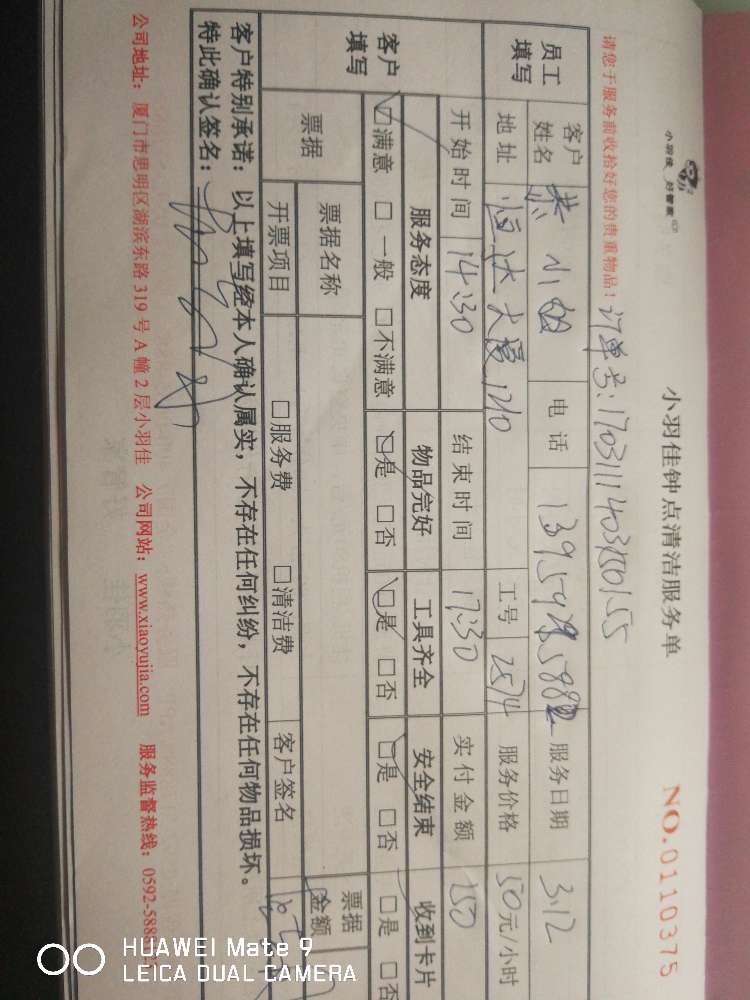 小羽佳 妇管家
小羽佳钟点清洁服务单
NO.0110375
请您于服务前收拾好您的贵重物品！
订单号:
员工填写 客户姓名 小 电话 服务日期 3.12
地址 恒达大厦1210 工号 2574 服务价格 50元/小时
开始时间 14:30 结束时间 17:30 实付金额 150
客户填写 服务态度 物品完好 工具齐全 安全结束 收到卡片
☑满意 □一般 □不满意 ☑是 □否 ☑是 □否 ☑是 □否 □是 □否
票据 票据名称 票据金额
开票项目 □服务费 □清洁费 客户签名
客户特别承诺：以上填写经本人确认属实，不存在任何纠纷，不存在任何物品损坏。
特此确认签名：
公司地址：厦门市思明区湖滨东路319号A幢2层小羽佳 公司网站：www.xiaoyujia.com 服务监督热线：0592-5888
HUAWEI Mate 9
LEICA DUAL CAMERA